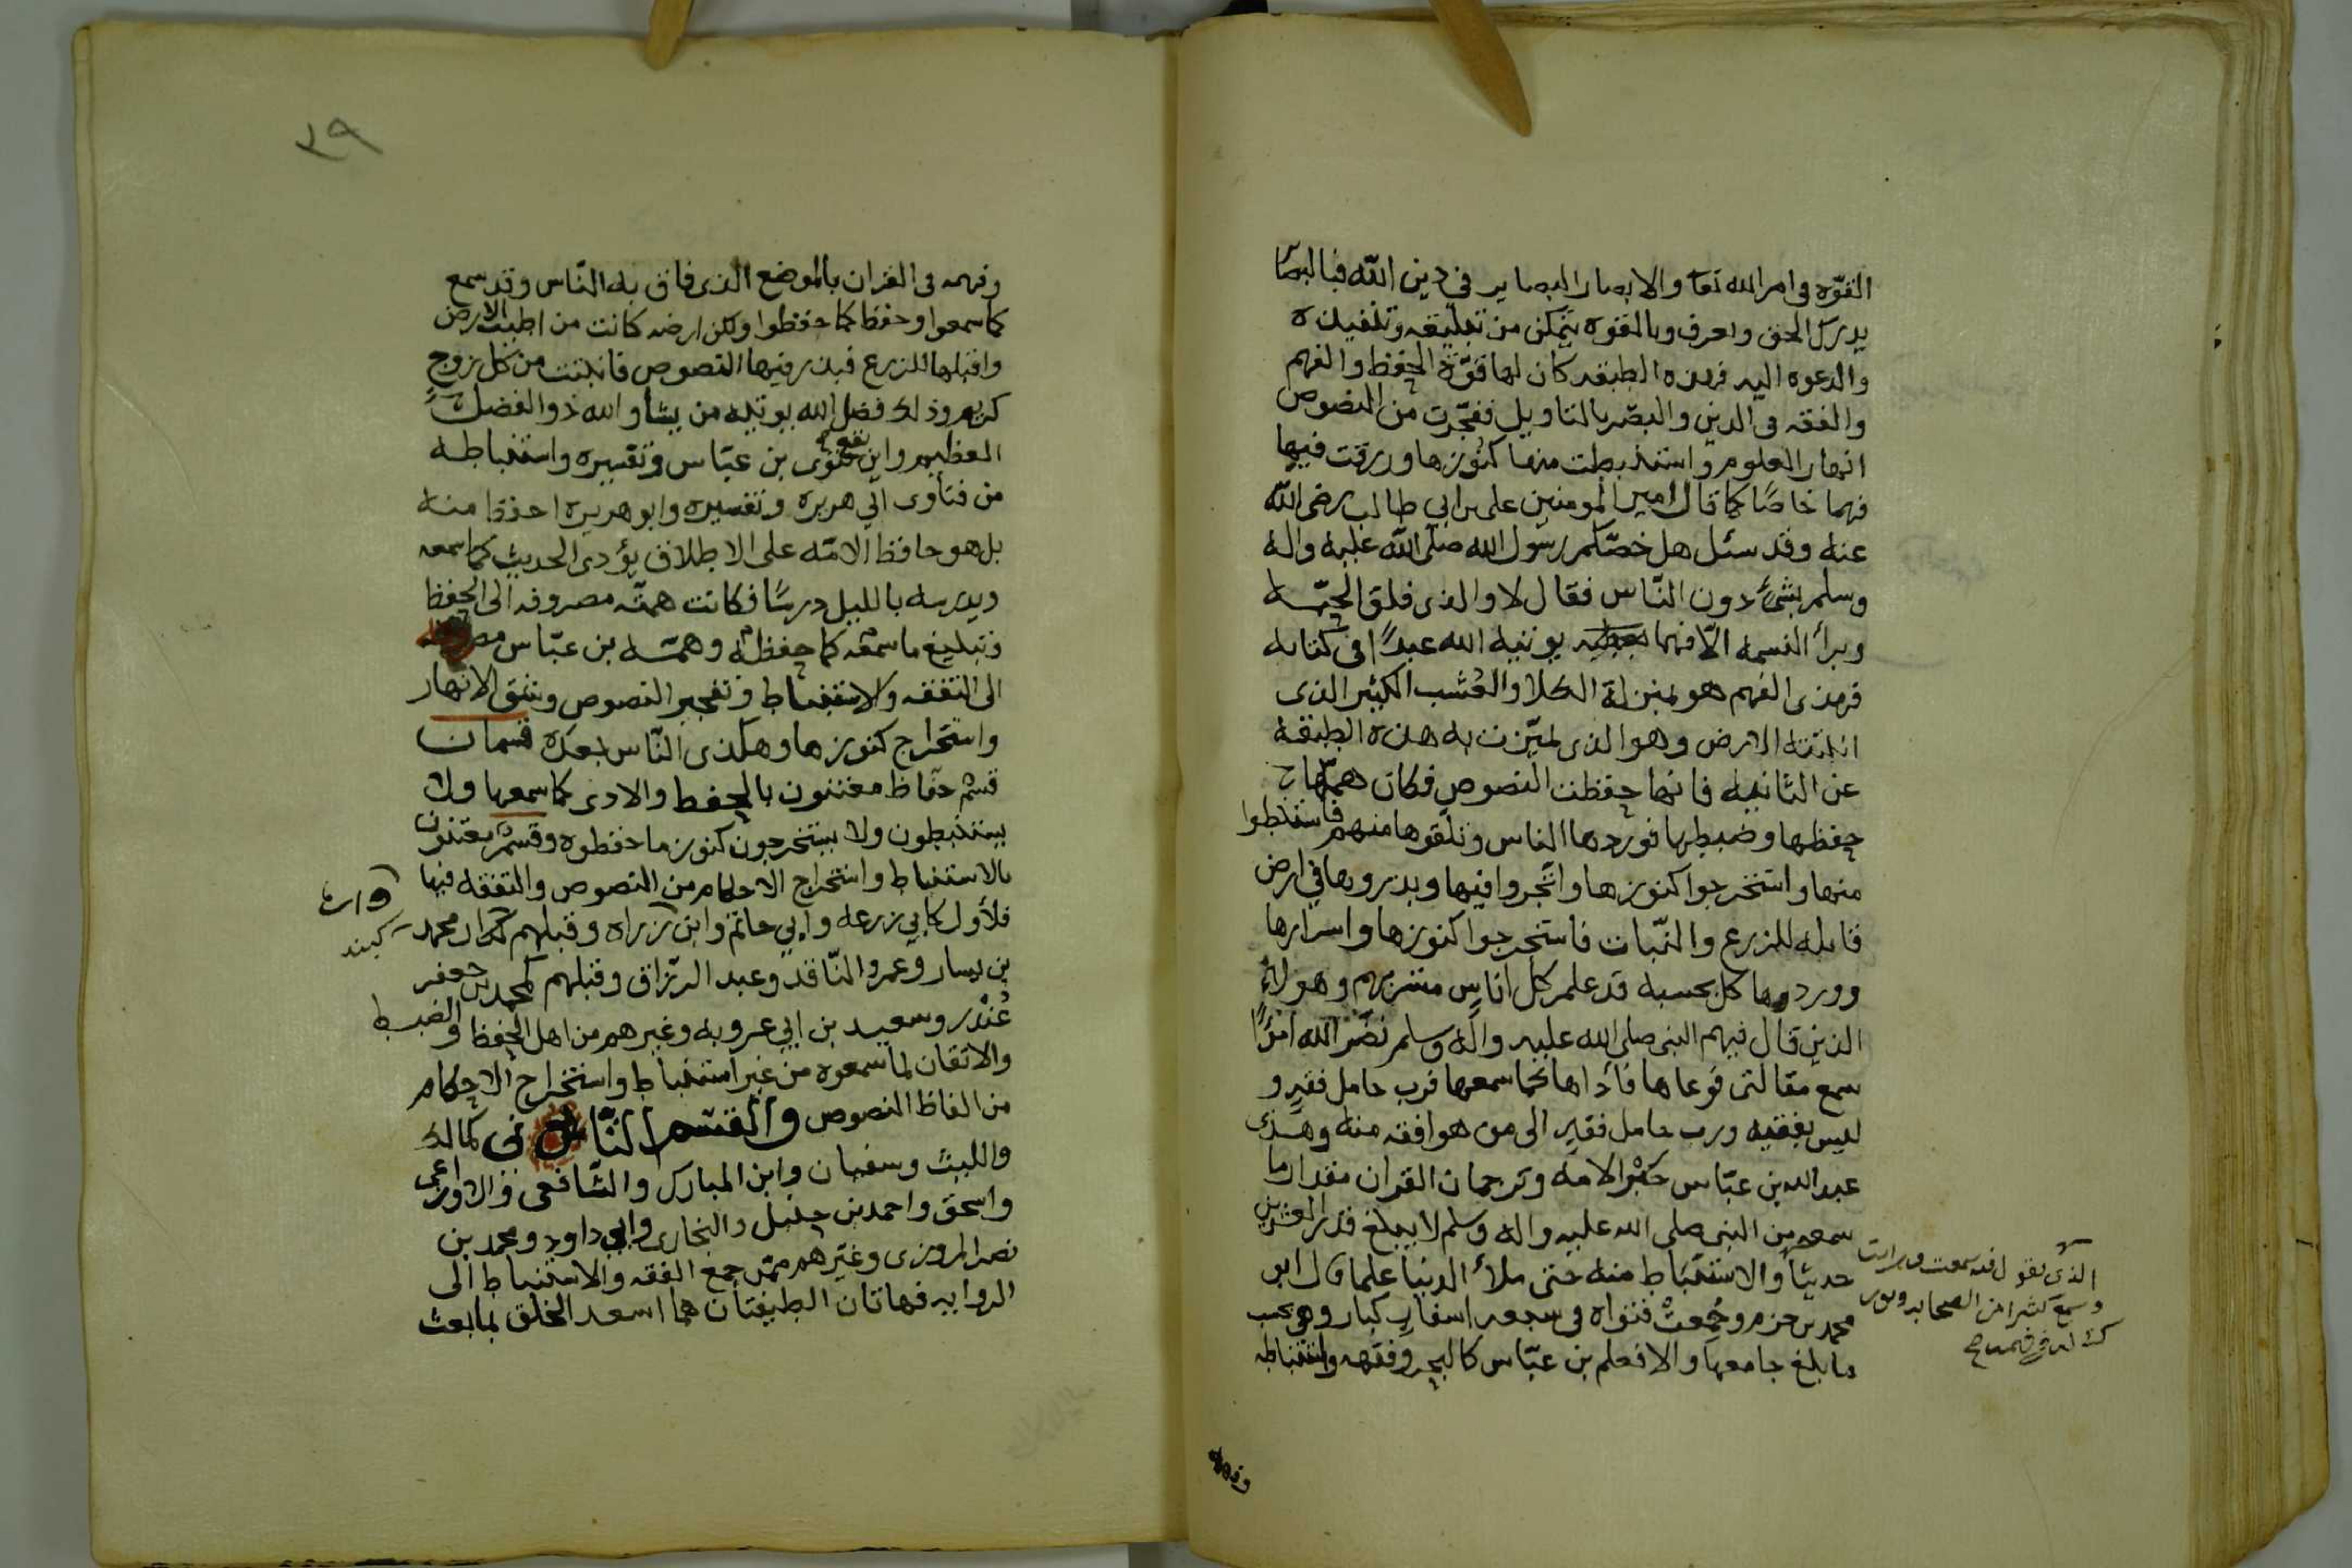 القوّه في امر الله تعا والابصار البصاير في دين الله فبالبصا
يدرك الحق واعرف وبالقوه يتمكن من تبليغه وتنفيذه
والدعوه اليه فهذه الطبقه كان لها قوّة الحفظ والفهم
والفقه في الدين والبصر بالتاويل ففجّرت من النصوص
انهار العلوم واستنبطت منها كنوزها ورزقت فيها
فهما خاصًا كما قال امير المومنين على بن ابي طالب رضى الله
عنه وقد سئل هل خصّكم رسول الله صلى الله عليه واله
وسلم بشئ دون النّاس فقال لا والذى فلق الحبّه
وبرأ النسمه الّا فهما يوتيه الله عبدًا في كتابه
فهذى الفهم هو بمنزلة الكلا والعُشب الكثير الذى
انبتته الارض وهو الذى تميّزت به هذه الطبقة
عن الثانيه فانها حفظت النصوص فكان همّها
حفظها وضبطها فوردها الناس وتلقوها منهم فاستنبطوا
منها واستخرجوا كنوزها واتّجروا فيها وبذروها في ارض
قابله للزرع والنّبات فاستخرجوا كنوزها واسرارها
ووردوها كل بحسبه قد علم كل اناس مشربهم وهولاء
الذين قال فيهم النبي صلى الله عليه واله وسلم نضّر الله امرًأ
سمع مقالتى فوعاها فاداها كما سمعها فرب حامل فقه و
ليس بفقيه ورب حامل فقه الى من هو افقه منه وهذى
عبد الله بن عبّاس حَبْر الامه وترجمان القران مقدار ما
سمعه من النبي صلى الله عليه واله وسلم لا يبلغ قدر العشرين
حديثًا والاستنباط منه حتى ملأ الدنيا علما قال ابو
محمد بن حزم وجُمعتْ فتواه في سبعه اسفار كبار وهى بحسب
ما بلغ جامعها والا فعلم بن عبّاس كالبحر وفقهه واستنباطه
الذى يقول فيه سمعت ورايت
وسمع كثيرا من الصحابه
وفهمه
٣٩
وفهمه في القران بالموضع الذى فاق به النّاس وقد سمع
كما سمعوا وحفظ كما حفظوا ولكن ارضه كانت من اطيب الارض
واقبلها للزرع فبذر فيها النصوص فانبتت من كل زوج
كريم وذلك فضل الله يوتيه من يشا والله ذوالفضل
العظيم واين تقع فتوى بن عبّاس وتفسيره واستنباطه
من فتاوى ابي هريره وتفسيره وابو هريره احفظ منه
بل هو حافظ الامّه على الاطلاق يؤدى الحديث كما سمعه
ويدرسه بالليل درسًا فكانت همته مصروفه الى الحفظ
وتبليغ ما سمعه كما حفظه وهمّة بن عبّاس مصروفه
الى التفقه والاستنباط وتفجير النصوص وشق الانهار
واستخراج كنوزها وهكذى النّاس بعده قسمان
قسم حفّاظ معتنون بالحفظ والادى كما سمعها ولا
يستنبطون ولا يستخرجون كنوز ما حفظوه وقسم معتنون
بالاستنباط واستخراج الاحكام من النصوص والتفقه فيها
فلأول كابي زرعه وابي حاتم وابن وراه وقبلهم كبندار محمد
واره
كبند
بن بسار وعمرو النّاقد وعبد الرزاق وقبلهم كمحمد بن جعفر
غُنْدر وسعيد بن ابي عروبه وغيرهم من اهل الحفظ والضبط
والاتقان لما سمعوه من غير استنباط واستخراج الاحكام
من الفاظ النصوص والقسم الثّاني كمالك
والليث وسفيان وابن المبارك والشافعى والاوزاعى
واسحق واحمد بن حنبل والبخارى وابي داود ومحمد بن
نصر المروزى وغيرهم ممّن جمع الفقه والاستنباط الى
الروايه فهاتان الطيفتان هما اسعد الخلق بما بعث